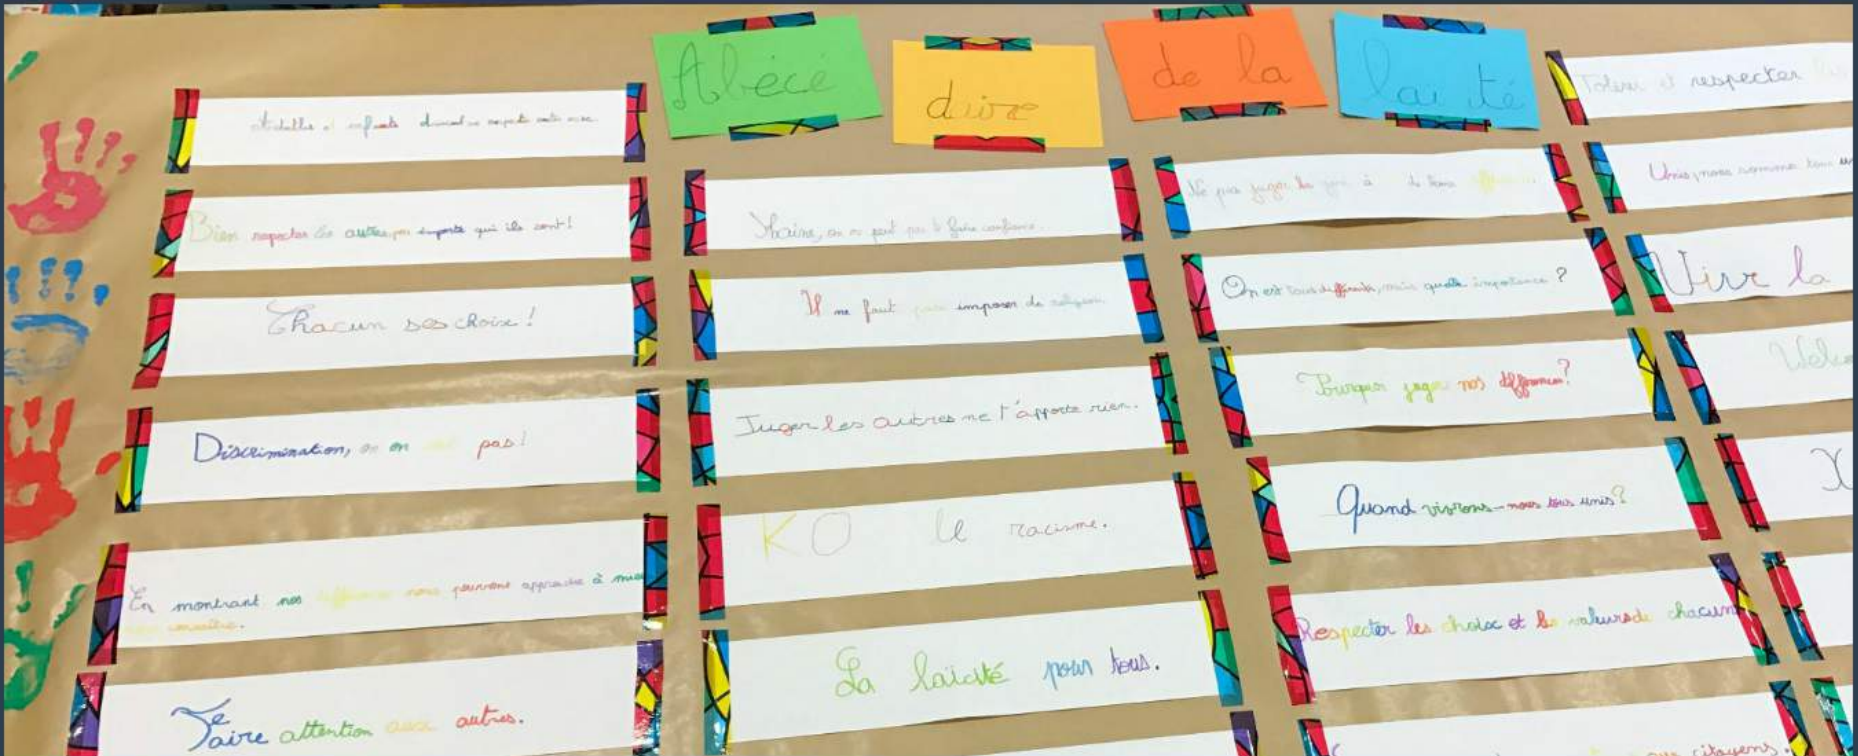 Abécé daire de la laïcité
Adultes et enfants doivent se respecter
Bien respecter les autres peu importe qui ils sont !
Chacun ses choix !
Discrimination, on on pas !
En montrant nos différences nous pouvons apprendre à mieux
nous connaître.
Faire attention aux autres.
Haine, on ne peut pas te faire confiance.
Il ne faut pas imposer de religion
Juger les autres ne t'apporte rien.
KO le racisme.
La laïcité pour tous.
Ne pas juger les à
On est tous différents, mais quelle importance ?
Pourquoi juger nos différences ?
Quand vivrons-nous tous unis ?
Respecter les choix et les valeurs de chacun
citoyens.
Tolérer et respecter
Unis, nous sommes tous
Vive la
X